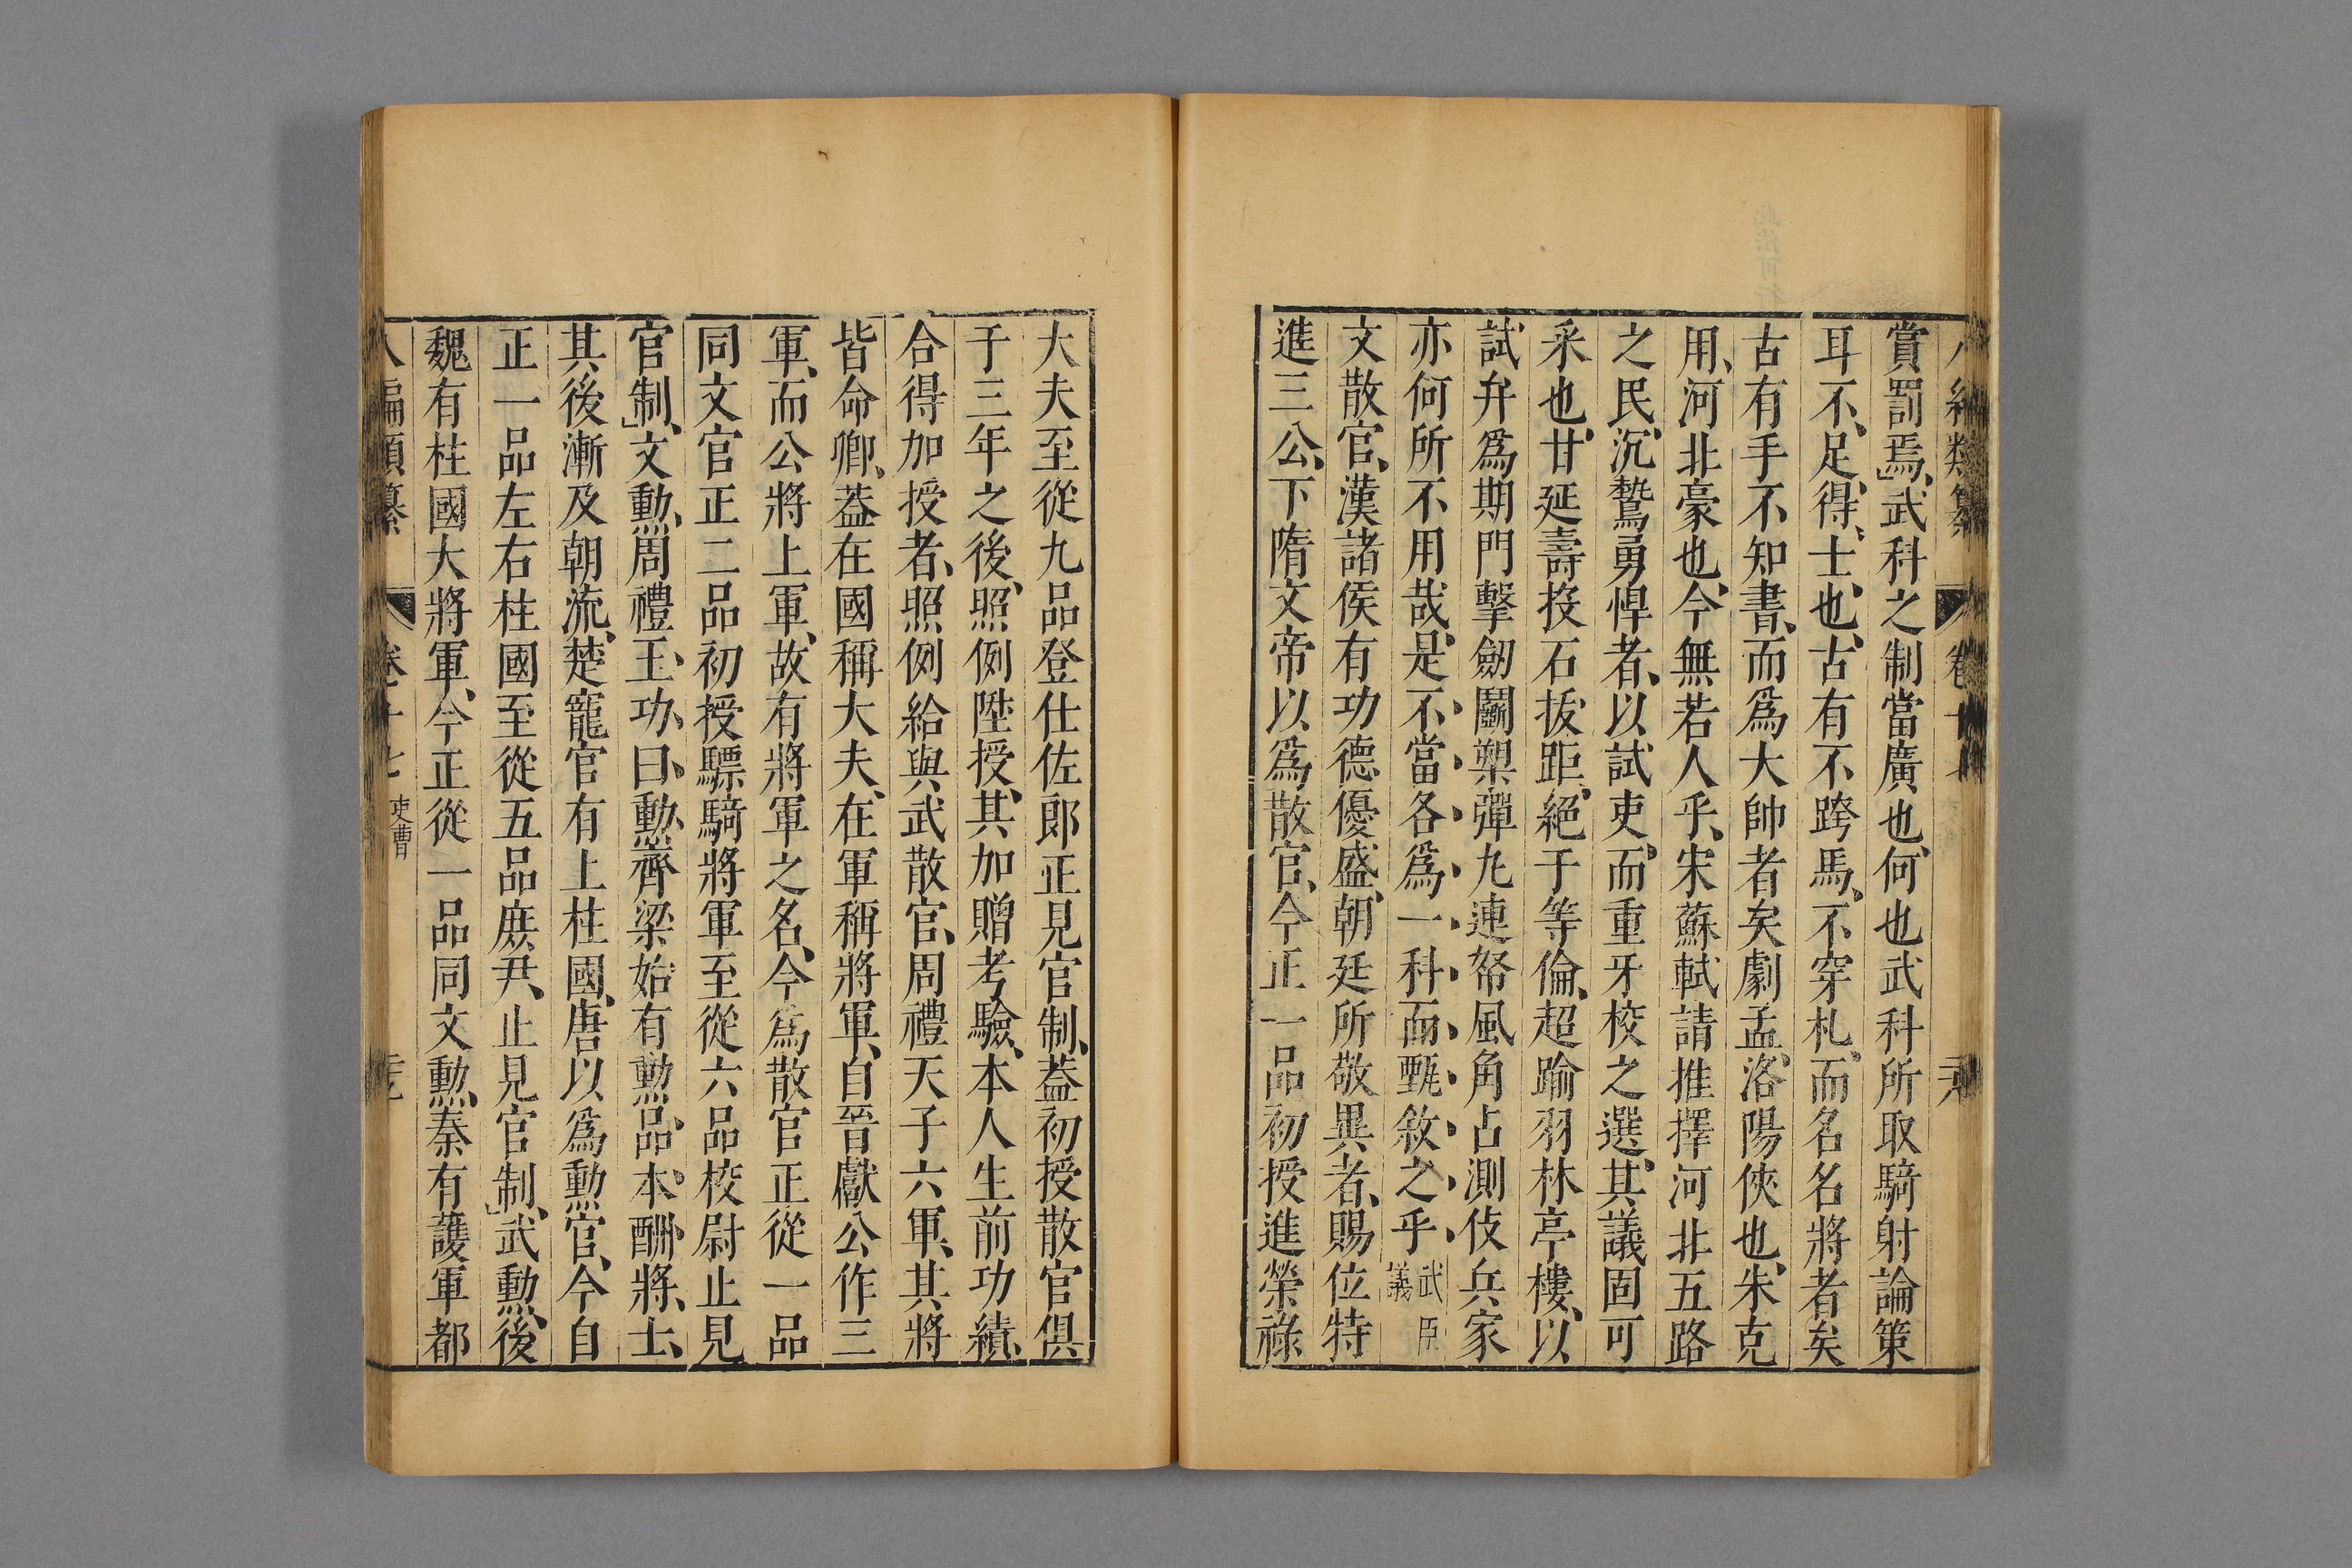 賞罰焉武科之制當廣也何也武科所取騎射論策
耳不足得士也古有不跨馬不穿札而名名將者矣
古有手不知書而爲大帥者矣劇孟洛陽俠也朱克
用河北豪也今無若人乎宋蘇軾請推擇河北五路
之民沉鷙勇悍者以試吏而重牙校之選其議固可
采也甘延壽投石拔距絕于等倫超踰羽林亭樓以
試弁爲期門擊劒鬭槊彈丸連弩風角占測伎兵家
亦何所不用哉是不當各爲一科而甄敘之乎武臣議
文散官漢諸侯有功德優盛朝廷所敬異者賜位特
進三公下隋文帝以爲散官今正一品初授進榮祿
大夫至從九品登仕佐郎正見官制蓋初授散官俱
于三年之後照例陞授其加贈考驗本人生前功績
合得加授者照例給與武散官周禮天子六軍其將
皆命卿蓋在國稱大夫在軍稱將軍自晉獻公作三
軍而公將上軍故有將軍之名今爲散官正從一品
同文官正二品初授驃騎將軍至從六品校尉止見
官制文勳周禮王功曰勳齊梁始有勳品本酬將士
其後漸及朝流楚寵官有上柱國唐以爲勳官今自
正一品左右柱國至從五品庶尹止見官制武勳後
魏有柱國大將軍今正從一品同文勳秦有護軍都
八編類纂 卷十七 吏曹